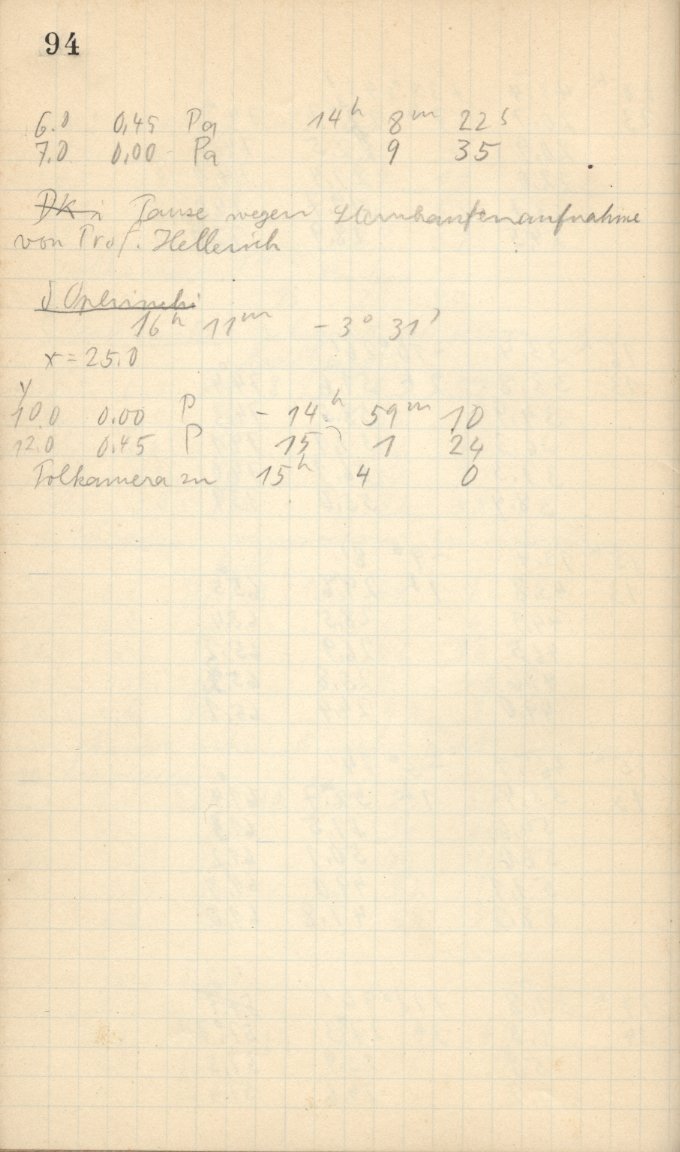 94
6.0 0,45 Pa 14h 8m 22s
7.0 0,00 Pa 9 35
DK Pause wegen Sternhaufenaufnahme
von Prof. Hellerich
δ Ophiuchi
16h 11m -3° 31'
x = 25.0
y
10.0 0.00 P - 14h 59m 10
12.0 0.45 P 15 1 24
Polkamera zu 15h 4 0